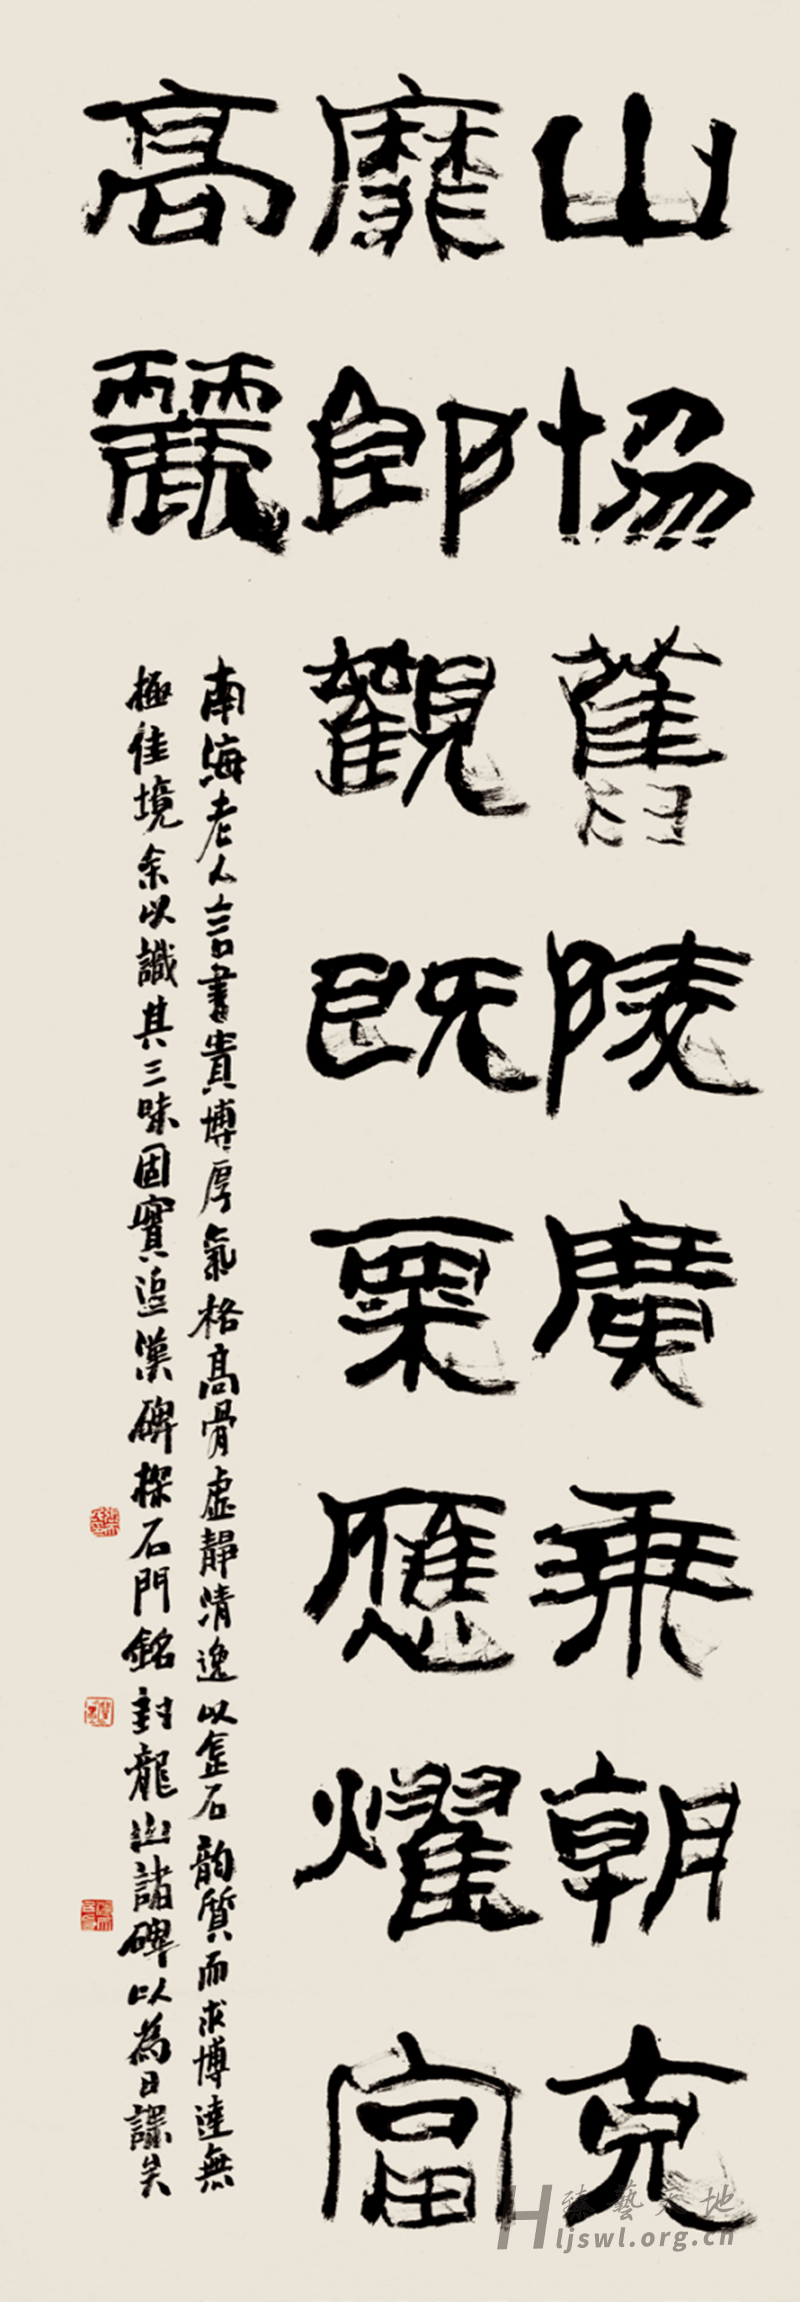 山協舊陵廣乘朝克
靡郎觀既栗應耀富
高麗
南海老人言書貴博厚氣格高骨虛靜清逸以金石韵質而求博達無
極佳境余以識其三味固實追漢碑探石門銘封龍山諸碑以為日課矣
臻藝天地
Hljswl.org.cn